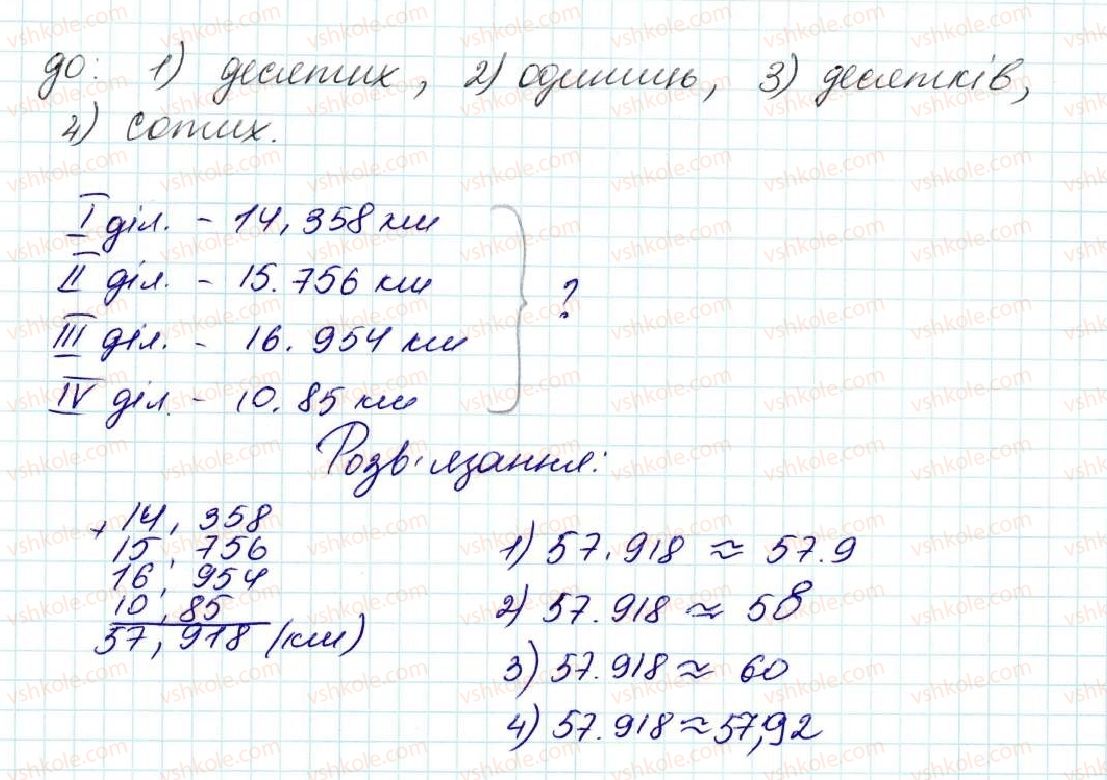 до: 1) десятих, 2) одиниць, 3) десятків,
4) сотих.
I діл. - 14,358 км
II діл. - 15.756 км
III діл. - 16.954 км
IV діл. - 10.85 км
?
Розв'язання:
+ 14,358
15,756
16,954
10,85
57,918 (км)
1) 57.918 ≈ 57.9
2) 57.918 ≈ 58
3) 57.918 ≈ 60
4) 57.918 ≈ 57,92
vshkole.com